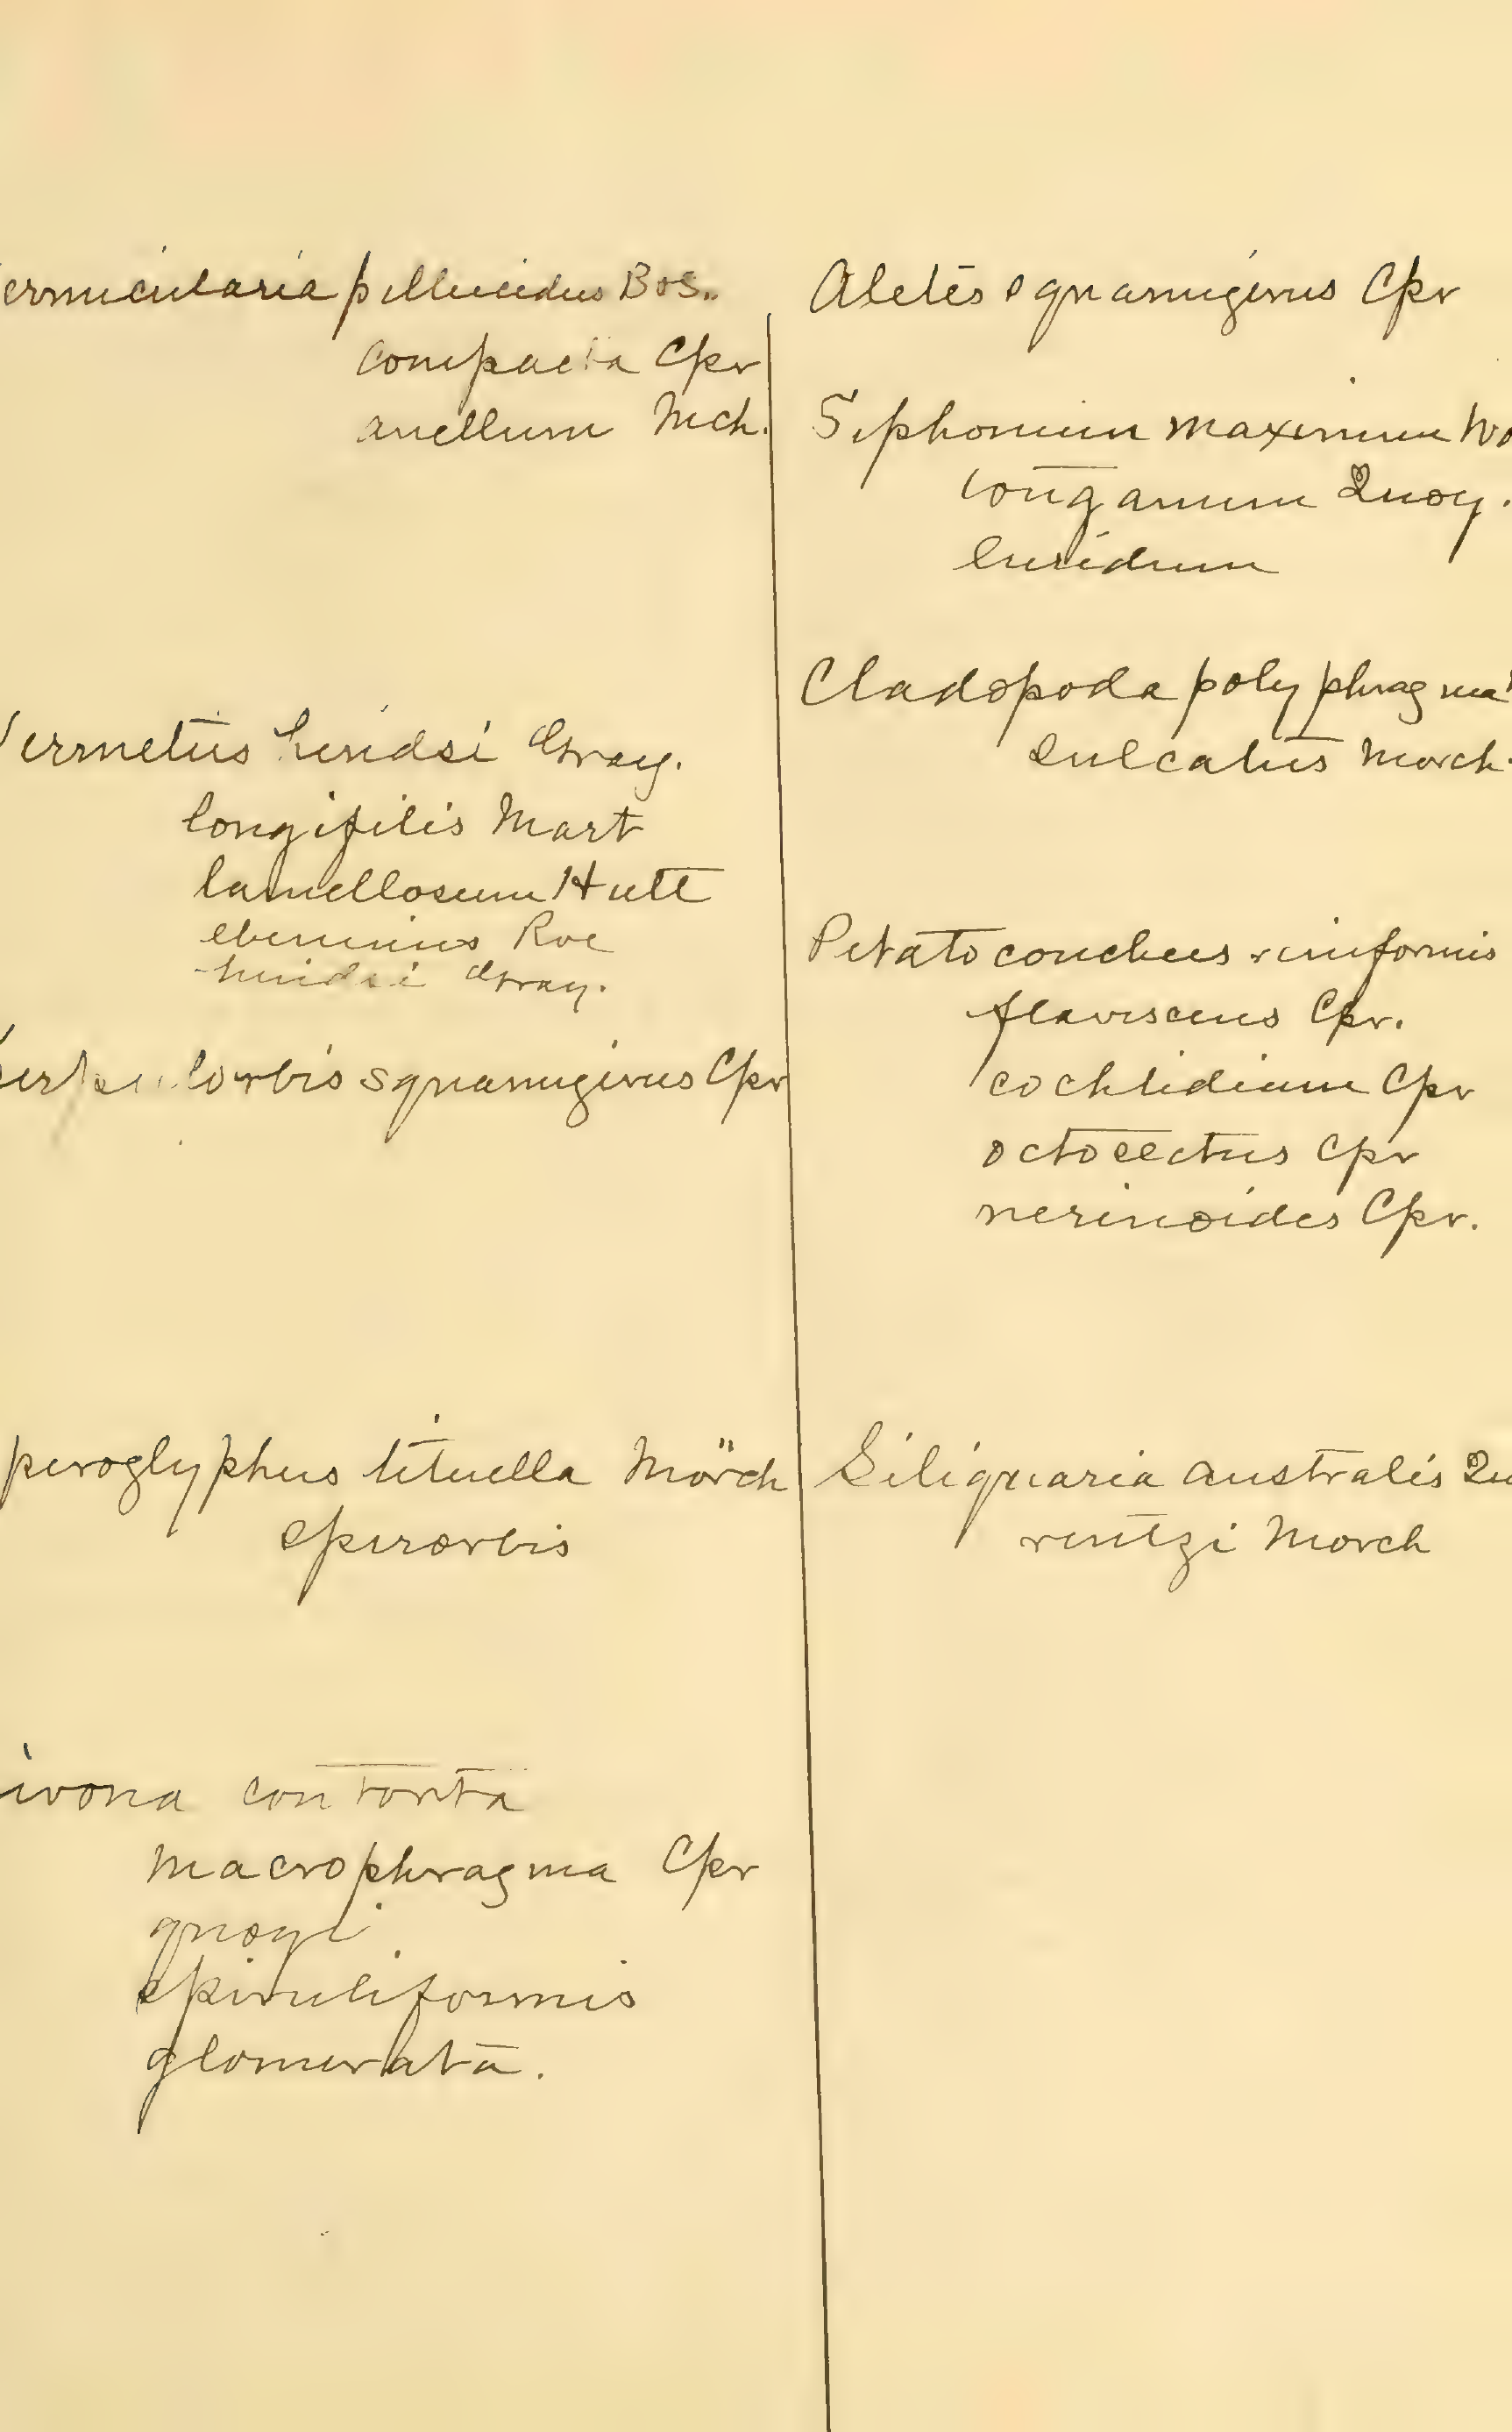 ermicularia pellucidus Bos..
compacta Cpr
anellum Mch.
Vermetus hindsi Gray.
longifilis Mart
lamellosum Hutt
ebeninus Roe
hindsi Gray.
Serpulorbis squamigerus Cpr
piroglyphus lituella Mörch
spirorbis
ivona contorta
macrophragma Cpr
quoyi
spiruliformis
glomerata.
Aletes squamigerus Cpr
Siphonium maximum
tonganum Quoy.
lucidum
Cladopoda polyphragma
sulcatus Morch.
Petatoconchus reniformis
flavescens Cpr.
cochlidium Cpr
octosectus Cpr
nerinoides Cpr.
Siliquaria australis Qu
rentzi Morch